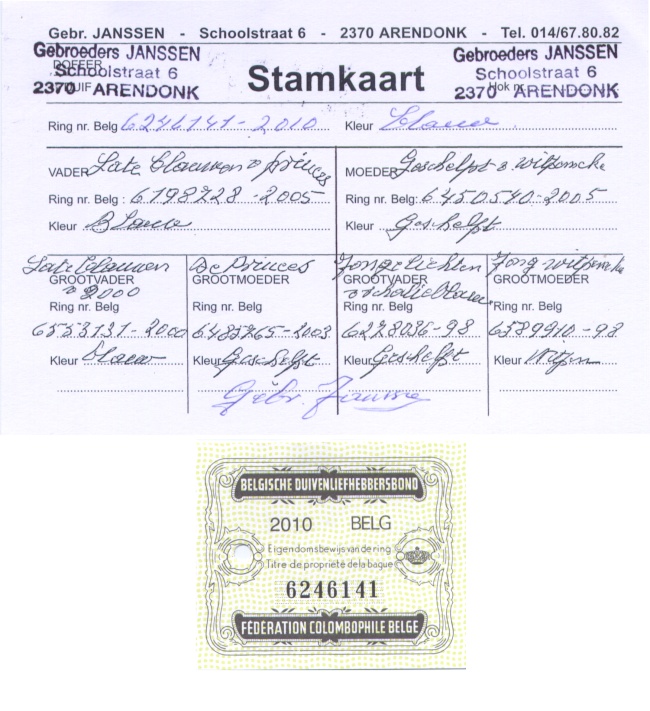 Gebr. JANSSEN - Schoolstraat 6 - 2370 ARENDONK - Tel. 014/67.80.82
Gebroeders JANSSEN Gebroeders JANSSEN
DOFFER
Schoolstraat 6 Stamkaart Schoolstraat 6
DUIF Hok nr.
2370 ARENDONK 2370 ARENDONK
Ring nr. Belg 6246141-2010 Kleur Blauw
VADER Late Blauwen princes MOEDER Geschelpt
Ring nr. Belg : 6198728-2005 Ring nr. Belg: 6450540-2005
Kleur Blauw Kleur Geschelpt
Late Blauwen De Princes Jonge Lichten Jong
GROOTVADER GROOTMOEDER GROOTVADER GROOTMOEDER
2000
Ring nr. Belg Ring nr. Belg Ring nr. Belg Ring nr. Belg
6553131-2000 6485765-2003 6278036-98 6389910-98
Kleur Blauw Kleur Geschelpt Kleur Geschelpt Kleur
Gebr. Janssen
BELGISCHE DUIVENLIEFHEBBERSBOND
2010 BELG
Eigendomsbewijs van de ring
Titre de propriété de la bague
6246141
FÉDÉRATION COLOMBOPHILE BELGE